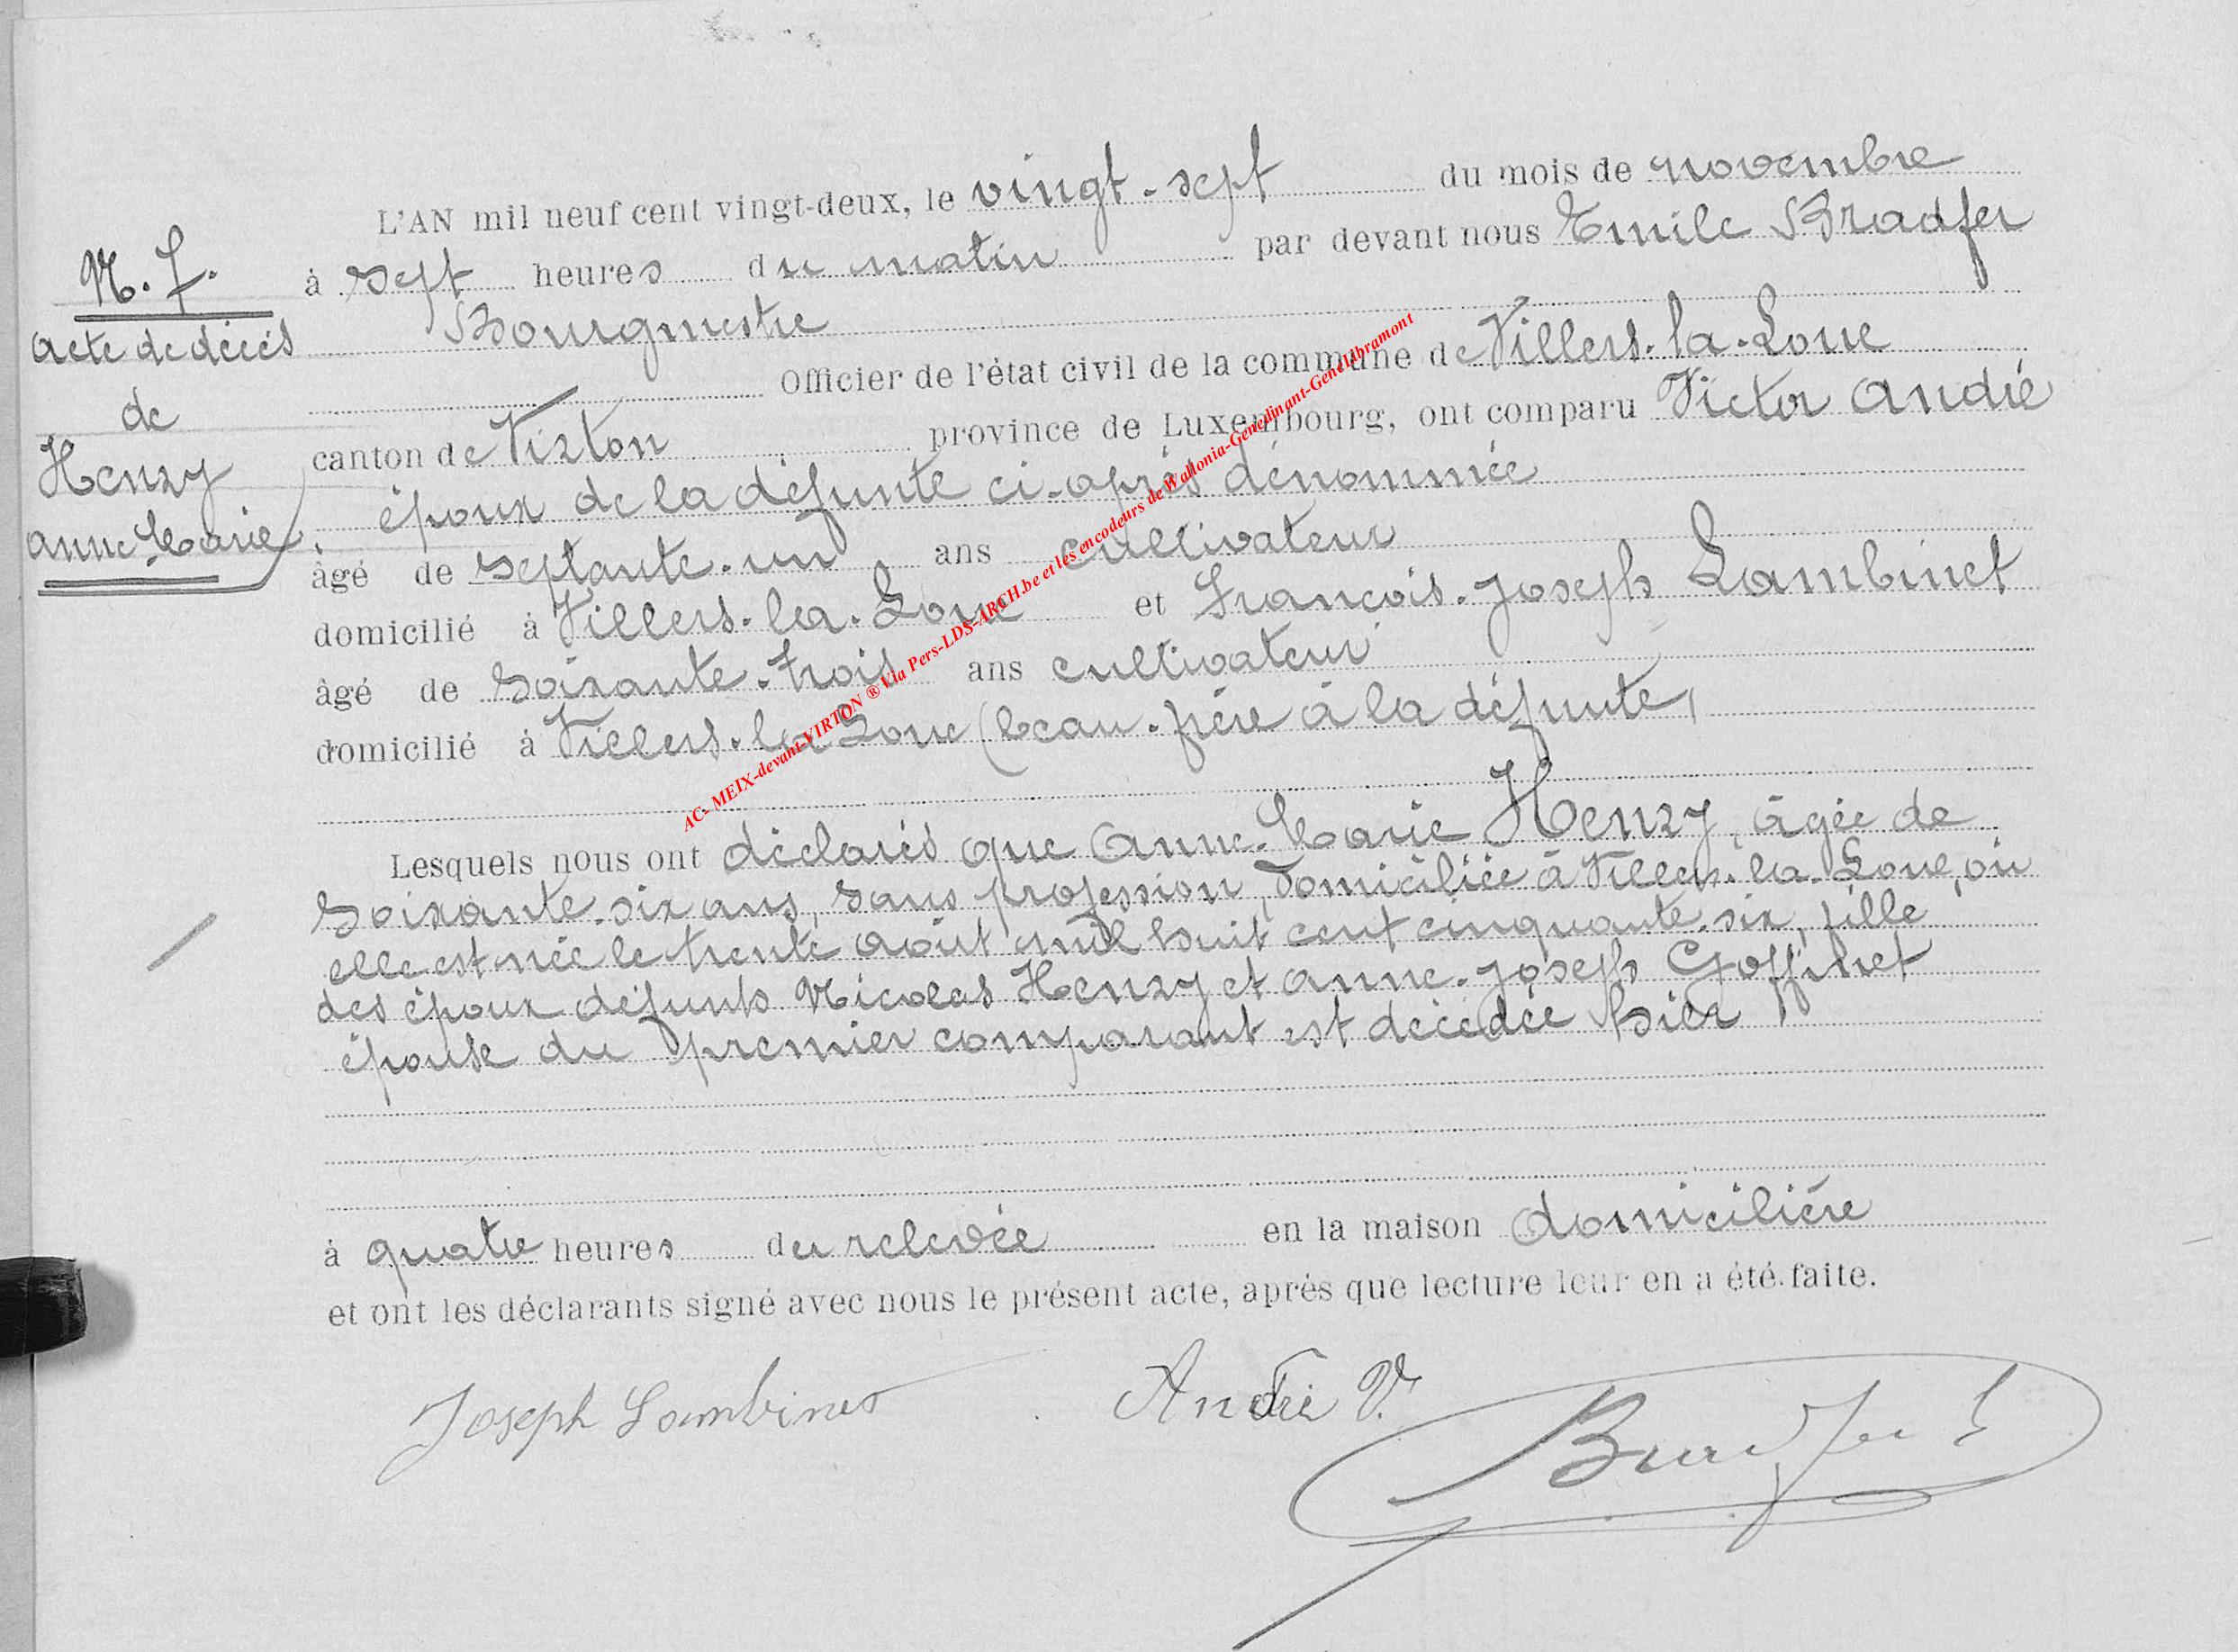 L'AN mil neuf cent vingt-deux, le vingt-sept du mois de novembre
à sept heures du matin par devant nous Emile Bradfer
Bourgmestre
Officier de l'état civil de la commune de Villers-la-Loue
canton de Virton province de Luxembourg, ont comparu Victor André
époux de la défunte ci-après dénommée
âgé de septante-un ans cultivateur
domicilié à Villers-la-Loue et François-Joseph Lambinet
âgé de soixante-trois ans cultivateur
domicilié à Villers-la-Loue (beau-frère à la défunte,
Lesquels nous ont déclarés que Anne-Marie Henry, âgée de
soixante-six ans, sans profession, domiciliée à Villers-la-Loue, où
elle est née le trente août mil huit cent cinquante-six, fille
des époux défunts Nicolas Henry et Anne-Joseph Goffinet
épouse du premier comparant est décédée hier
à quatre heures de relevée en la maison domicilière
et ont les déclarants signé avec nous le présent acte, après que lecture leur en a été faite.
Joseph Lambinet André V. Bradfer
N. 7.
Acte de décès
de
Henry
Anne-Marie
AC- MEIX-devant-VIRTON ® Via Pers-LDS-ARCH.be et les encodeurs de Wallonia-Genedinant-GeneLibramont